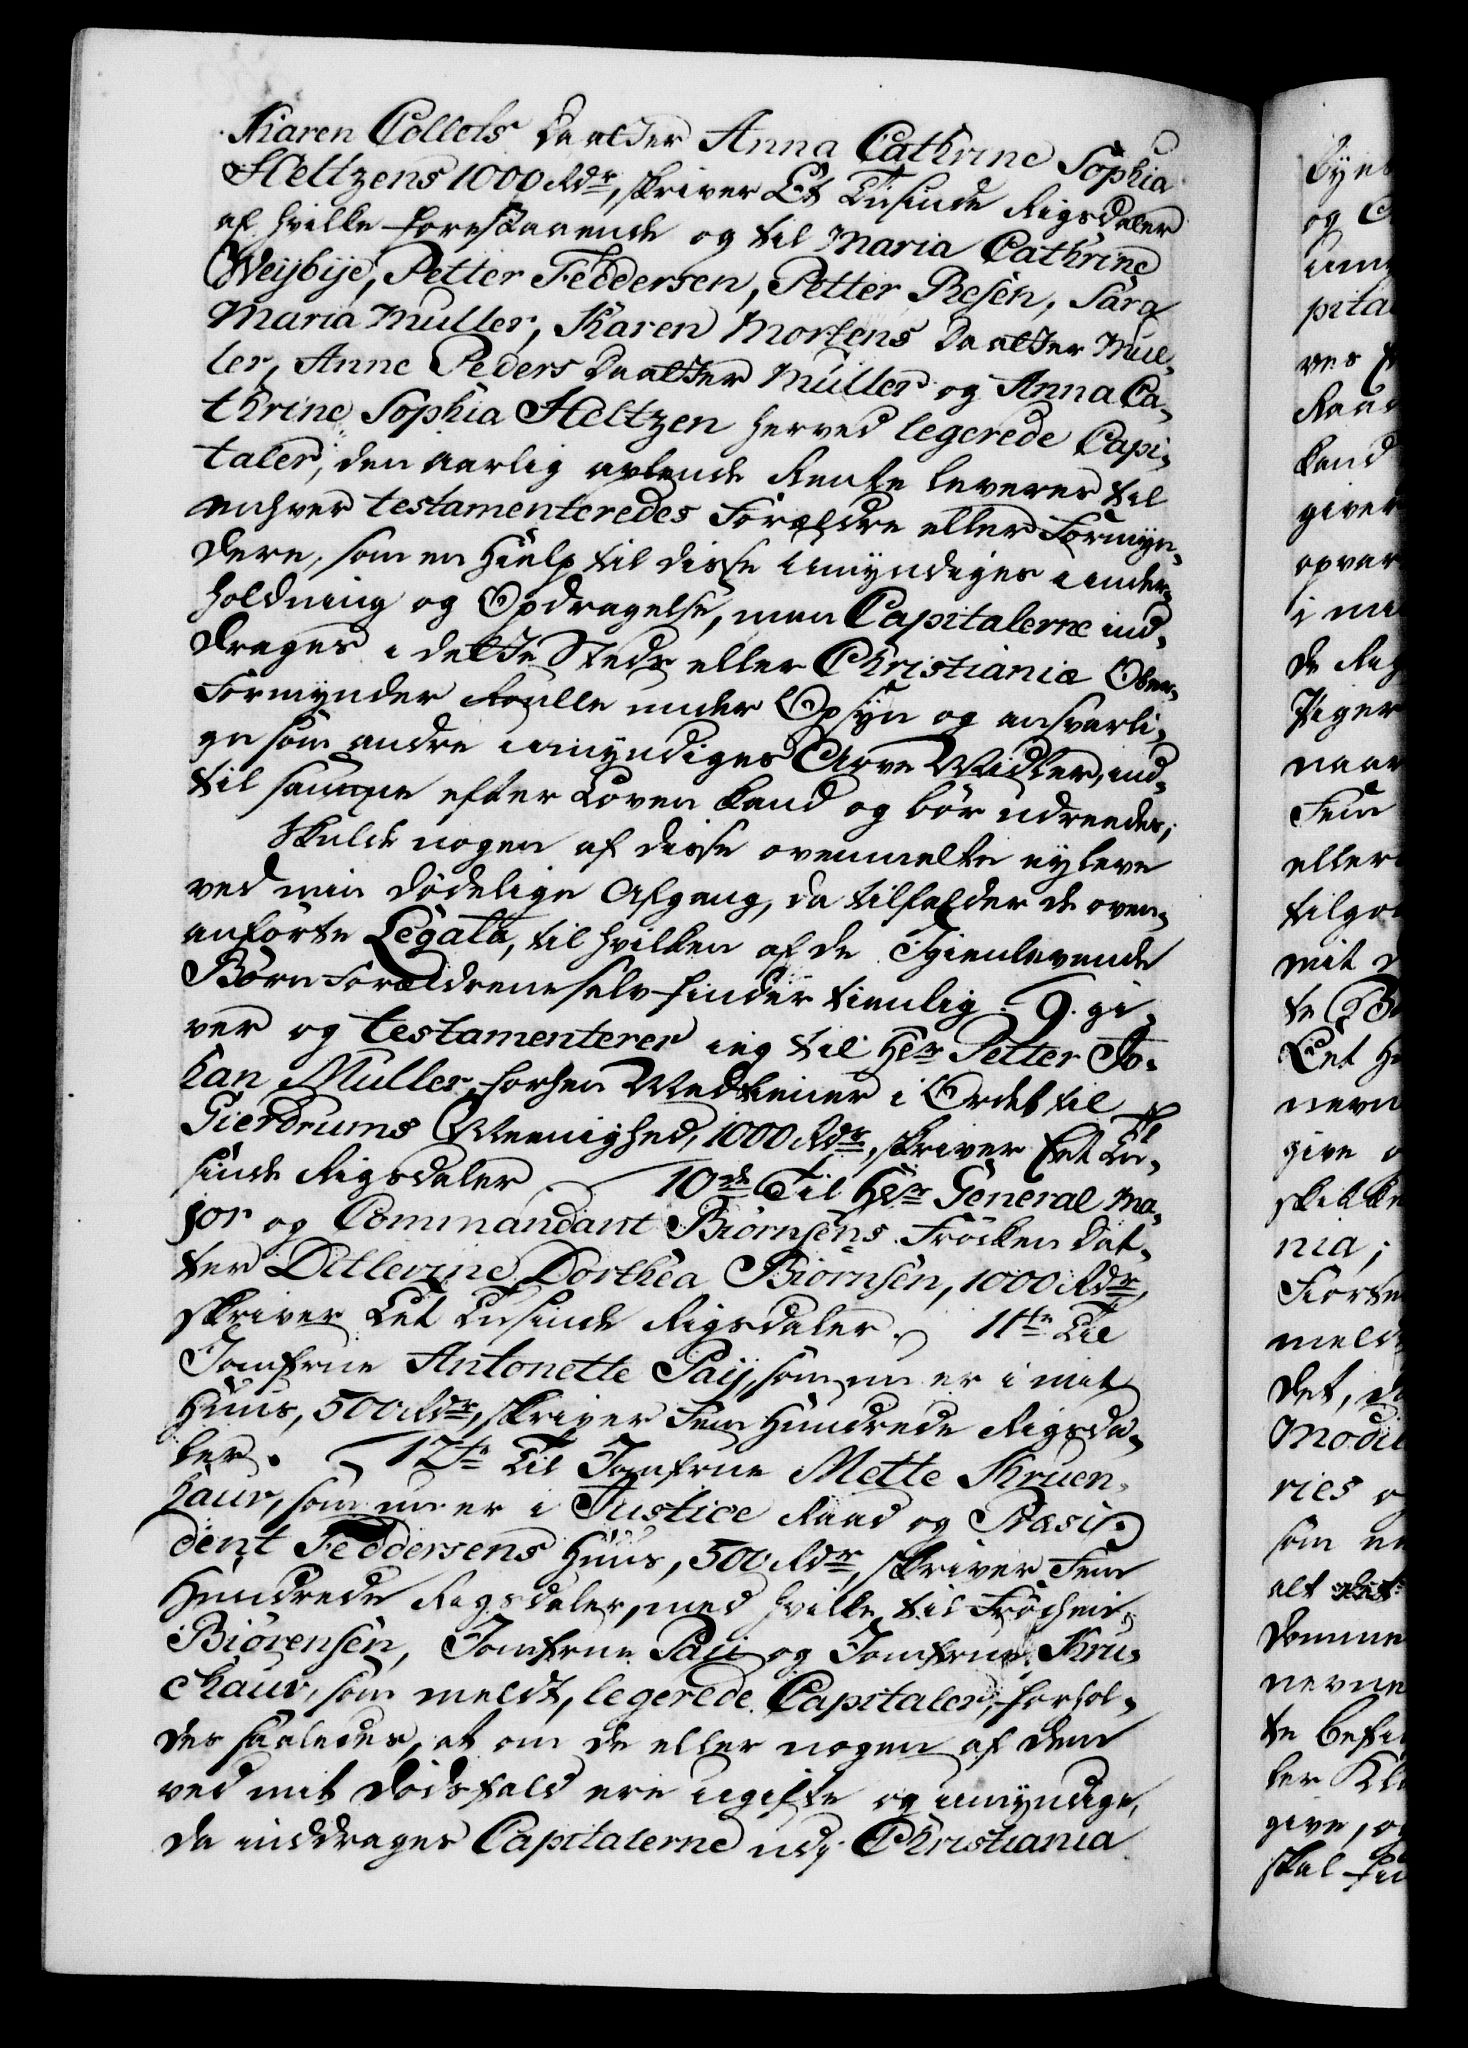 Karen Collets Daatter Anna Cathrine Sophia
Heltzens 1000 Rdr, skriver Et Tusinde Rigsdaler
af hvilke forestaaende og til Maria Cathrine
Weijbije, Petter Feddersen, Petter Resen, Sara
Maria Muller, Karen Mortens Daatter Mul-
ler, Anne Peders Daatter Müller og Anna Ca-
thrine Sophia Heltzen herved legerede Capi-
taler, den aarlig avlende Rente leveres til
enhver testamenteredes Forældre eller Formyn-
dere, som en Hielp til disse umyndiges under-
holdning og Opdragelse, men Capitalerne ind-
drages i dette Steds eller Christiania Ober-
Formynder Rulle under Opsyn og ansvarli-
gen som andre umyndiges Arve Midler, ind-
til samme efter Loven kand og bør udreedes;
Skulde nogen af disse ovenmelte ey leve
ved min dødelige Afgang, da tilfalder de oven-
anførte Legata, til hvilken af de Igienlevende
Børn Forældrene selv finder tienlig. 9. gi-
ver og testamenterer ieg til Hr Petter Jo-
han Müller, forhen Medtiener i Ordet til
Gierdrums Meenighed, 1000 Rdr, skriver Et Tu-
sinde Rigsdaler. 10de Til Hr General Ma-
jor og Commandant Biørnsens Frøcken Dat-
ter Ditlevine Dorthea Biørnsen, 1000 Rdr,
skriver Eet Tusinde Rigsdaler. 11te Til
Jomfrue Antonette Paij, som nu er i mit
Huus, 500 Rdr, skriver Fem Hundrede Rigsda-
ler. 12te Til Jomfrue Mette Kruen-
haur, som nu er i Justice Raad og Præsi-
dent Feddersens Huus, 500 Rdr, skriver Fem
Hundrede Rigsdaler, med hvilke til Frøchen
Biørensen, Jomfrue Paij og Jomfrue Kru-
ckaur, som meldt, legerede Capitaler, forhol-
des saaledes, at om de eller nogen af dem
ved mit dødsfald ere ugifte og umyndige,
da inddrages Capitalerne udj Christiania